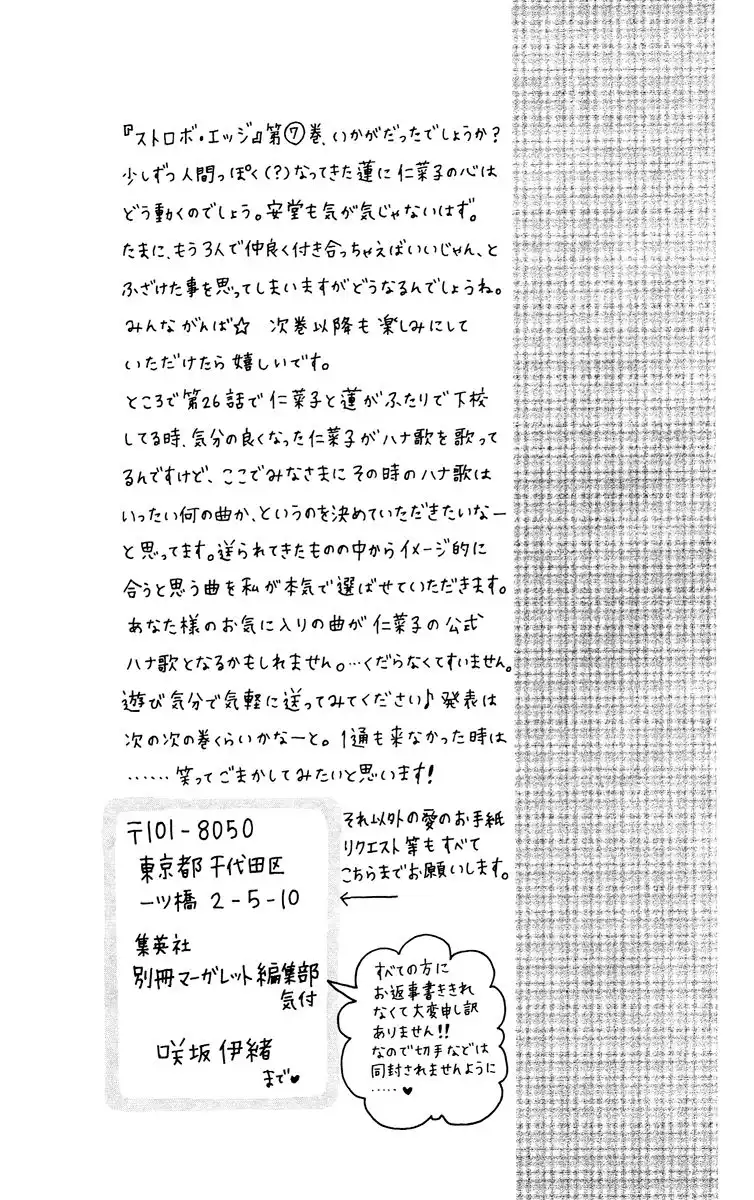 『ストロボ・エッジ』第⑦巻、いかがだったでしょうか？
少しずつ人間っぽく(？)なってきた蓮に仁菜子の心は
どう動くのでしょう。安堂も気が気じゃないはず。
たまに、もう3人で仲良く付き合っちゃえばいいじゃん、と
ふざけた事を思ってしまいますがどうなるんでしょうね。
みんながんば☆ 次巻以降も楽しみにして
いただけたら嬉しいです。
ところで第26話で仁菜子と蓮がふたりで下校
してる時、気分の良くなった仁菜子がハナ歌を歌って
るんですけど、ここでみなさまにその時のハナ歌は
いったい何の曲か、というのを決めていただきたいなー
と思ってます。送られてきたものの中からイメージ的に
合うと思う曲を私が本気で選ばせていただきます。
あなた様のお気に入りの曲が仁菜子の公式
ハナ歌となるかもしれません。…くだらなくてすいません。
遊び気分で気軽に送ってみてください♪発表は
次の次の巻くらいかなーと。1通も来なかった時は
……笑ってごまかしてみたいと思います！
それ以外の愛のお手紙
リクエスト等もすべて
こちらまでお願いします。
←
〒101-8050
東京都千代田区
一ツ橋 2-5-10
集英社
別冊マーガレット編集部
気付
咲坂伊緒
まで♥
すべての方に
お返事書ききれ
なくて大変申し訳
ありません!!
なので切手などは
同封されませんように
……♥